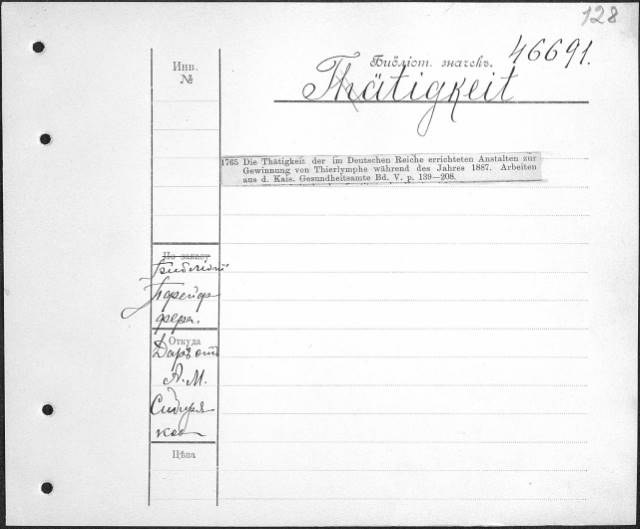 128
Инв.
№
Библіот. значекъ.
46691.
Thätigkeit
1765 Die Thätigkeit der im Deutschen Reiche errichteten Anstalten zur
Gewinnung von Thierlymphe während des Jahres 1887. Arbeiten
aus d. Kais. Gesundheitsamte Bd. V. p. 139—208.
По заказу
Библіот
Пфейф
фера.
Откуда
Даръ отъ
А. М.
Сибиря
кова
Цѣна